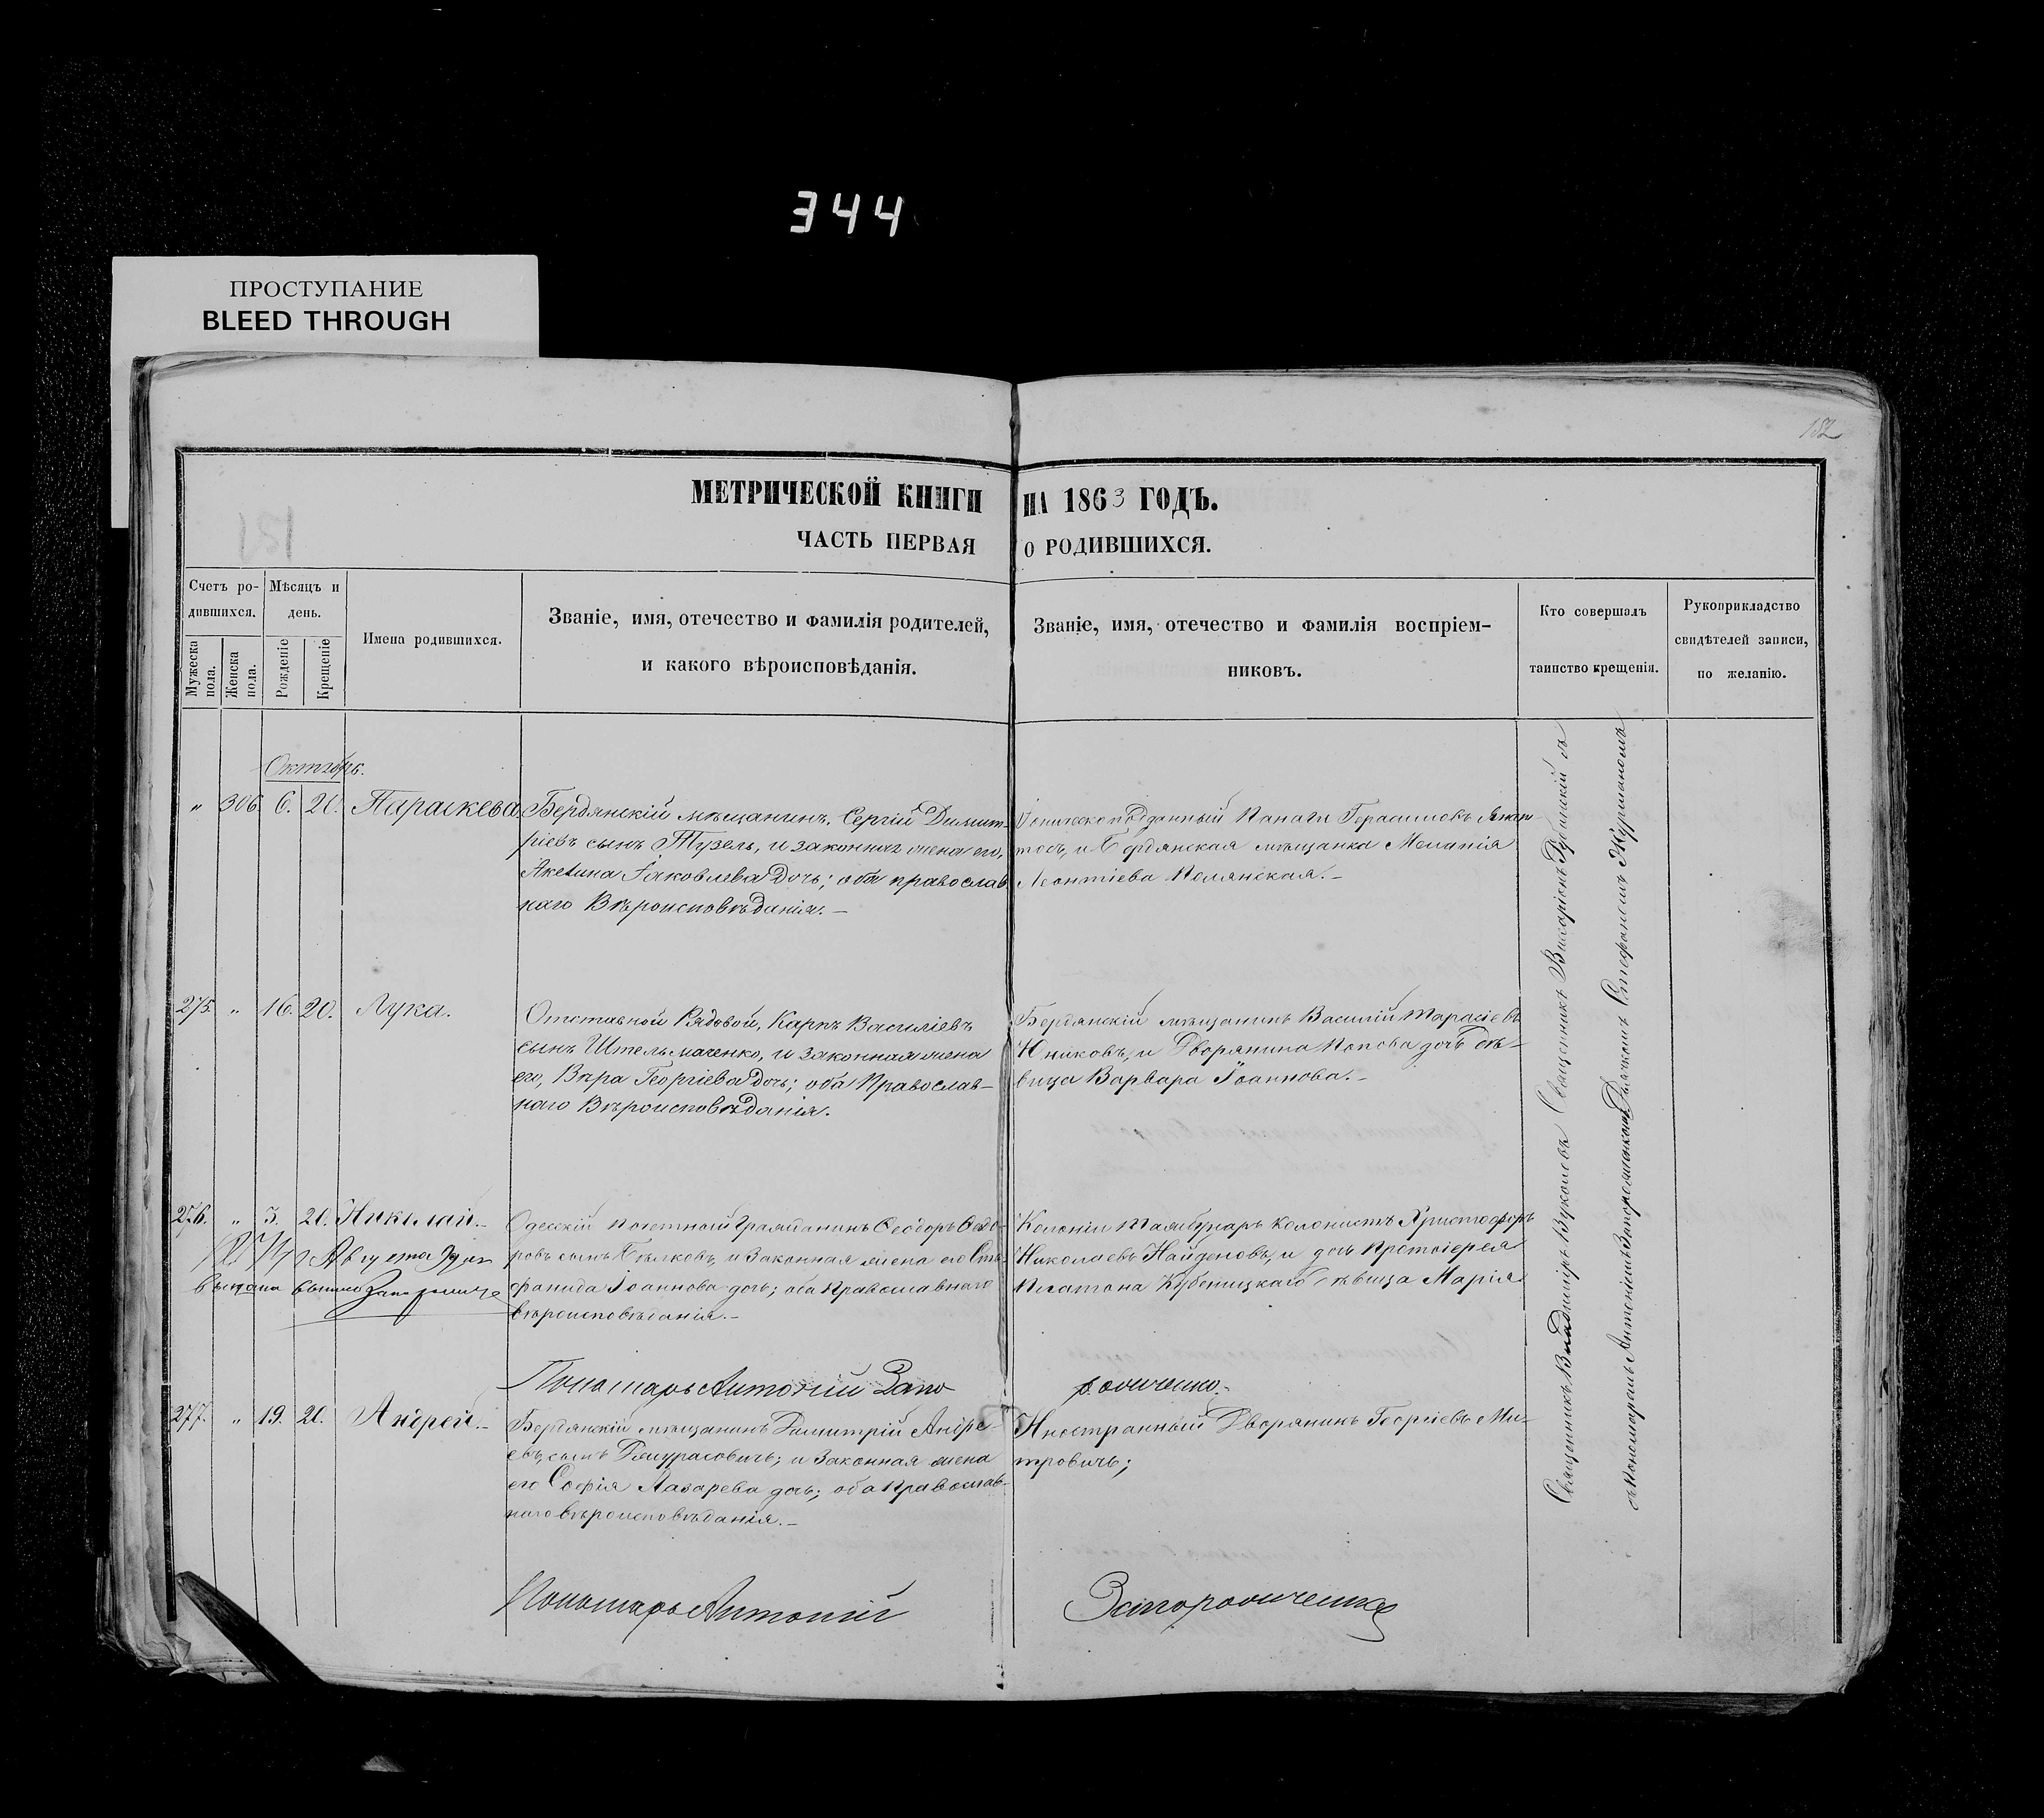 344
ПРОСТУПАНИЕ
BLEED THROUGH
152
151
МЕТРИЧЕСКОЙ КНИГИ НА 1863 ГОДЪ.
ЧАСТЬ ПЕРВАЯ О РОДИВШИХСЯ.
Счетъ ро-
дившихся.
Мужеска пола.
Женска пола.
Мѣсяцъ и
день.
Рожденіе
Крещеніе
Имена родившихся.
Званіе, имя, отечество и фамилія родителей,
и какого вѣроисповѣданія.
Званіе, имя, отечество и фамилія воспріем-
никовъ.
Кто совершалъ
таинство крещенія.
Рукоприкладство
свидѣтелей записи,
по желанію.
Октябрь.
" 306. 6. 20. Параскева.
Бердянскій мѣщанинъ, Сергій Димит-
ріевъ сынъ Тузель, и законная жена его,
Іаковлева дочь; оба православ-
наго Вѣроисповѣданія.—
Панаги
и Бердянская мѣщанка Меланія
Леонтіева Полянская.—
275. " 16. 20. Лука.
Отставной Рядовой, Карпъ Василіевъ
сынъ Штельмаченко, и законная жена
его, Вѣра Георгіева дочь; оба Православ-
наго Вѣроисповѣданія.
Бердянскій мѣщанинъ Василій Тарасіевъ
и Дворянина Попова дочь дѣ-
вица Варвара Іоаннова.—
276. " 3. 20. Николай.—
Августа
Одесскій почетный гражданинъ Ѳеодоръ Ѳеодо-
ровъ сынъ Бѣлковъ, и законная жена его Сте-
фанида Іоаннова дочь; оба Православнаго
вѣроисповѣданія.—
Колоніи колонистъ Христофоръ
Николаевъ Найденовъ, и дочь Протоіерея
Платона дѣвица Марія
Пономарь Антоній Запо
рожченко.
277. " 19. 20. Андрей.—
Бердянскій мѣщанинъ Димитрій Андре-
евъ сынъ и законная жена
его Софія Лазарева дочь; оба Православ-
наго вѣроисповѣданія.—
Иностранный Дворянинъ Георгіевъ Ми-
тровичъ;
Пономарь Антоній
Запорожченко
Священникъ Владиміръ Вуколовъ Священникъ Виссаріонъ съ
съ Пономаремъ Антоніемъ Запорожченкомъ Дьячкомъ Стефаномъ